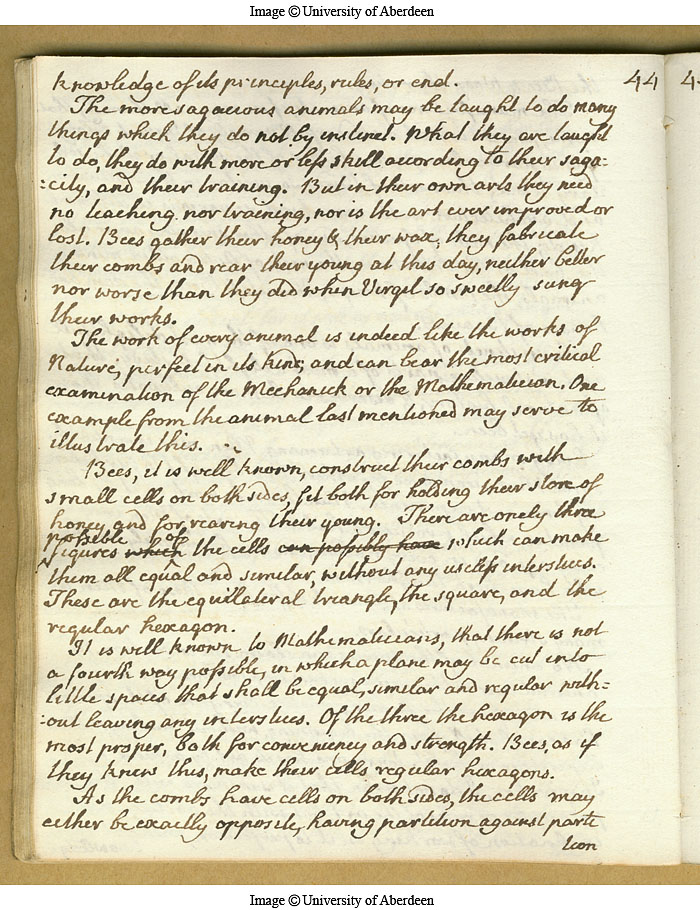 Image © University of Aberdeen
44
knowledge of its principles, rules, or end.
The more sagacious animals may be taught to do many
things which they do not by instinct. What they are taught
to do, they do with more or less skill according to their saga:
:city, and their training. But in their own arts they need
no teaching nor training, nor is the art ever improved or
lost. Bees gather their honey & their wax, they fabricate
their combs and rear their young at this day, neither better
nor worse than they did when Virgil so sweetly sung
their works.
The work of every animal is indeed like the works of
Nature, perfect in its kind, and can bear the most critical
examination of the Mechanick or the Mathematician. One
example from the animal last mentioned may serve to
illustrate this.
Bees, it is well known, construct their combs with
small cells on both sides, fit both for holding their store of
honey, and for rearing their young. There are onely three
possible of
figures which the cells can possibly have which can make
them all equal and similar, without any useless interstices.
These are the equilateral triangle, the square, and the
regular hexagon.
It is well known to Mathematicians, that there is not
a fourth way possible, in which a plane may be cut into
little spaces that shall be equal, similar and regular with:
:out leaving any interstices. Of the three the hexagon is the
most proper, both for conveniency and strength. Bees, as if
they knew this, make their cells regular hexagons.
As the combs have cells on both sides, the cells may
either be exactly opposite, having partition against parti
tion
Image © University of Aberdeen